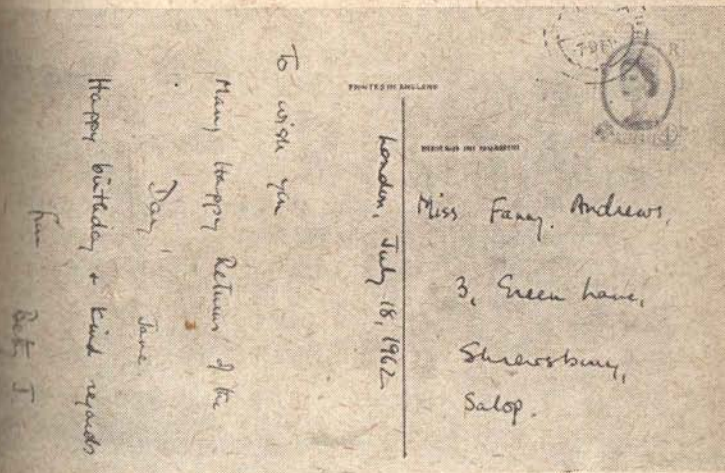 PRINTED IN ENGLAND
London, July 18, 1962
To wish you
Many Happy Returns of the
Day,
Jane
Happy birthday + kind regards
from Betty J
Miss Fanny. Andrews,
3, Green Lane,
Shrewsbury,
Salop.